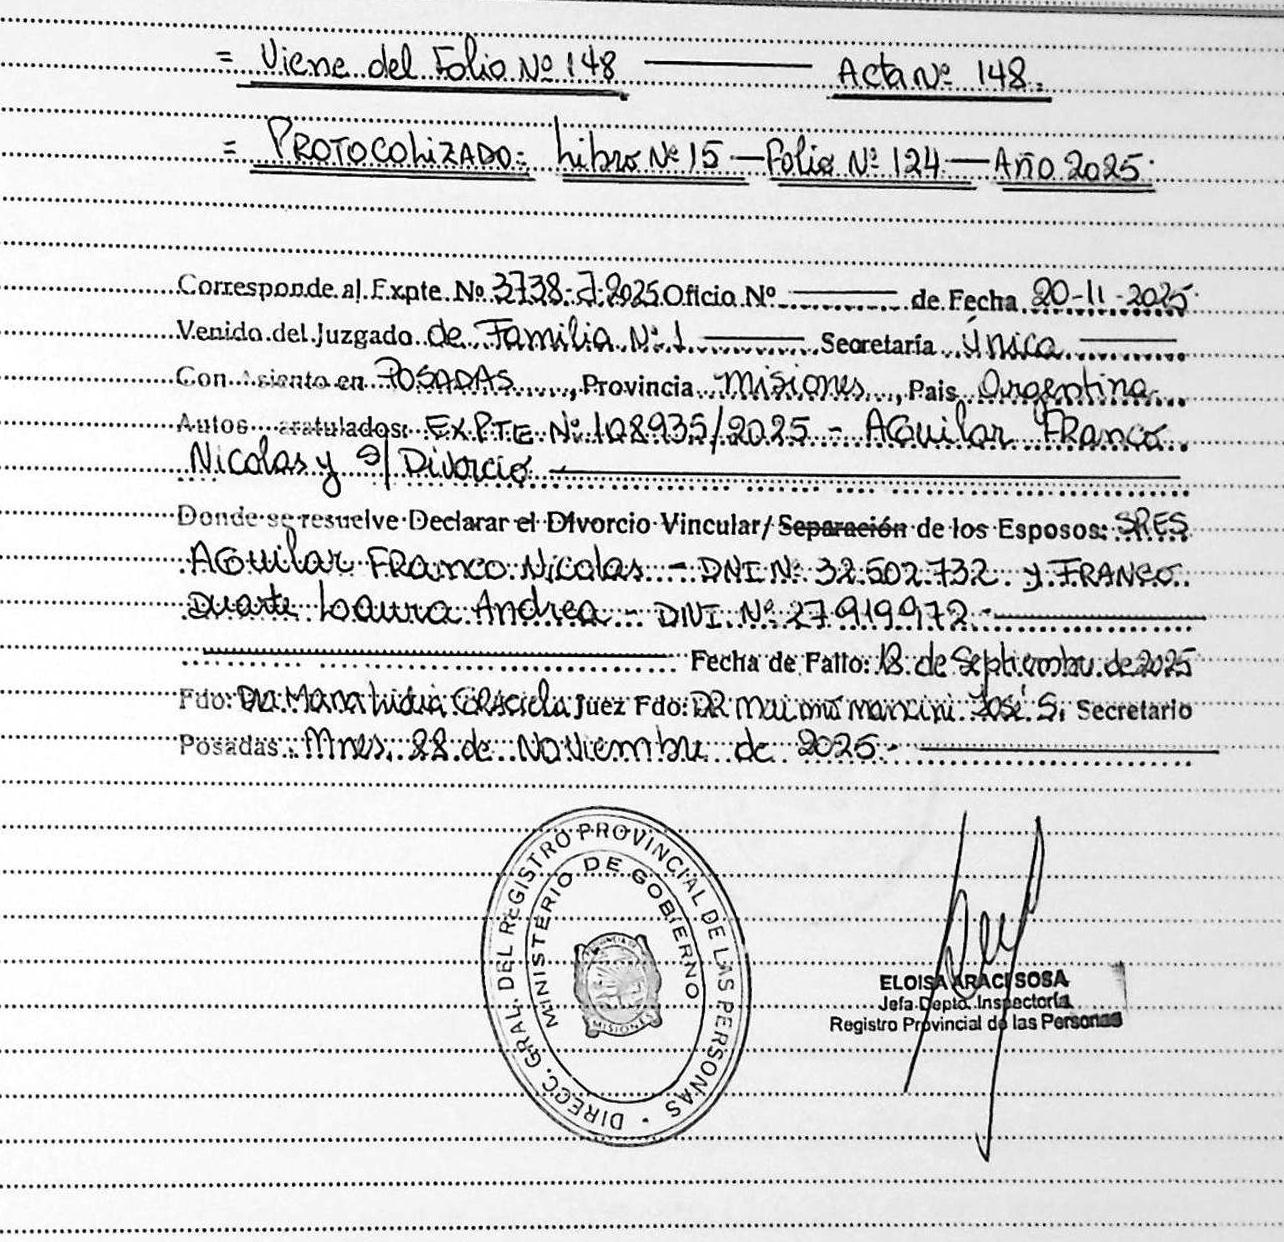 = Viene del Folio Nº 148 Acta Nº 148.
= PROTOCOLIZADO: Libro Nº 15 - Folio Nº 124 - Año 2025.
Corresponde al Expte. Nº 3738-J-2025 Oficio Nº de Fecha 20-11-2025
Venido del Juzgado de Familia Nº 1 Secretaría Única
Con Asiento en POSADAS, Provincia Misiones, Pais Argentina
Autos caratulados: EXPTE Nº 108935/2025 - AGuilar FRanco
Nicolas y s/ Divorcio
Donde se resuelve Declarar el Divorcio Vincular/ Separación de los Esposos: SRES
AGuilar FRanco Nicolas - DNI Nº 32.502.732 y FRANCO
Duarte Laura Andrea - DNI. Nº 27.919.972 -
Fecha de Fallo: 18 de Septiembre de 2025
Fdo: Juez Fdo: DR José S. Secretario
Posadas, Mnes, 28 de Noviembre de 2025 -
DIRECC. GRAL. DEL REGISTRO PROVINCIAL DE LAS PERSONAS
MINISTERIO DE GOBIERNO
PROVINCIA DE
MISIONES
ELOISA ARACI SOSA
Jefa Depto. Inspectoría
Registro Provincial de las Personas